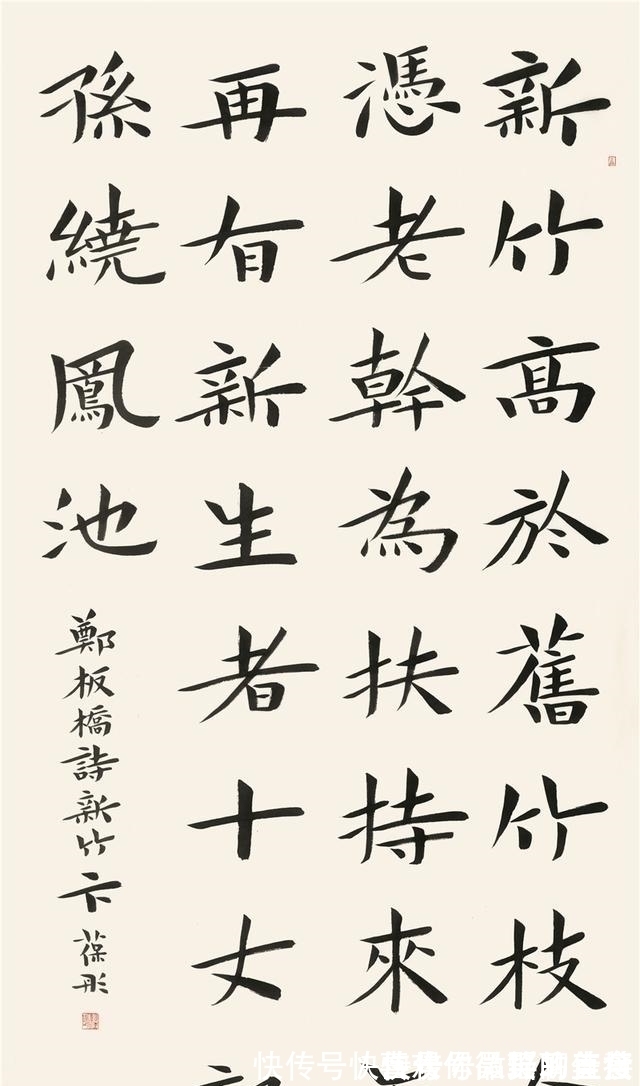 新竹髙於舊竹枝
憑老幹為扶持來
再有新生者十丈
孫繞鳳池
鄭板橋詩新竹 卞葆彤
快传号